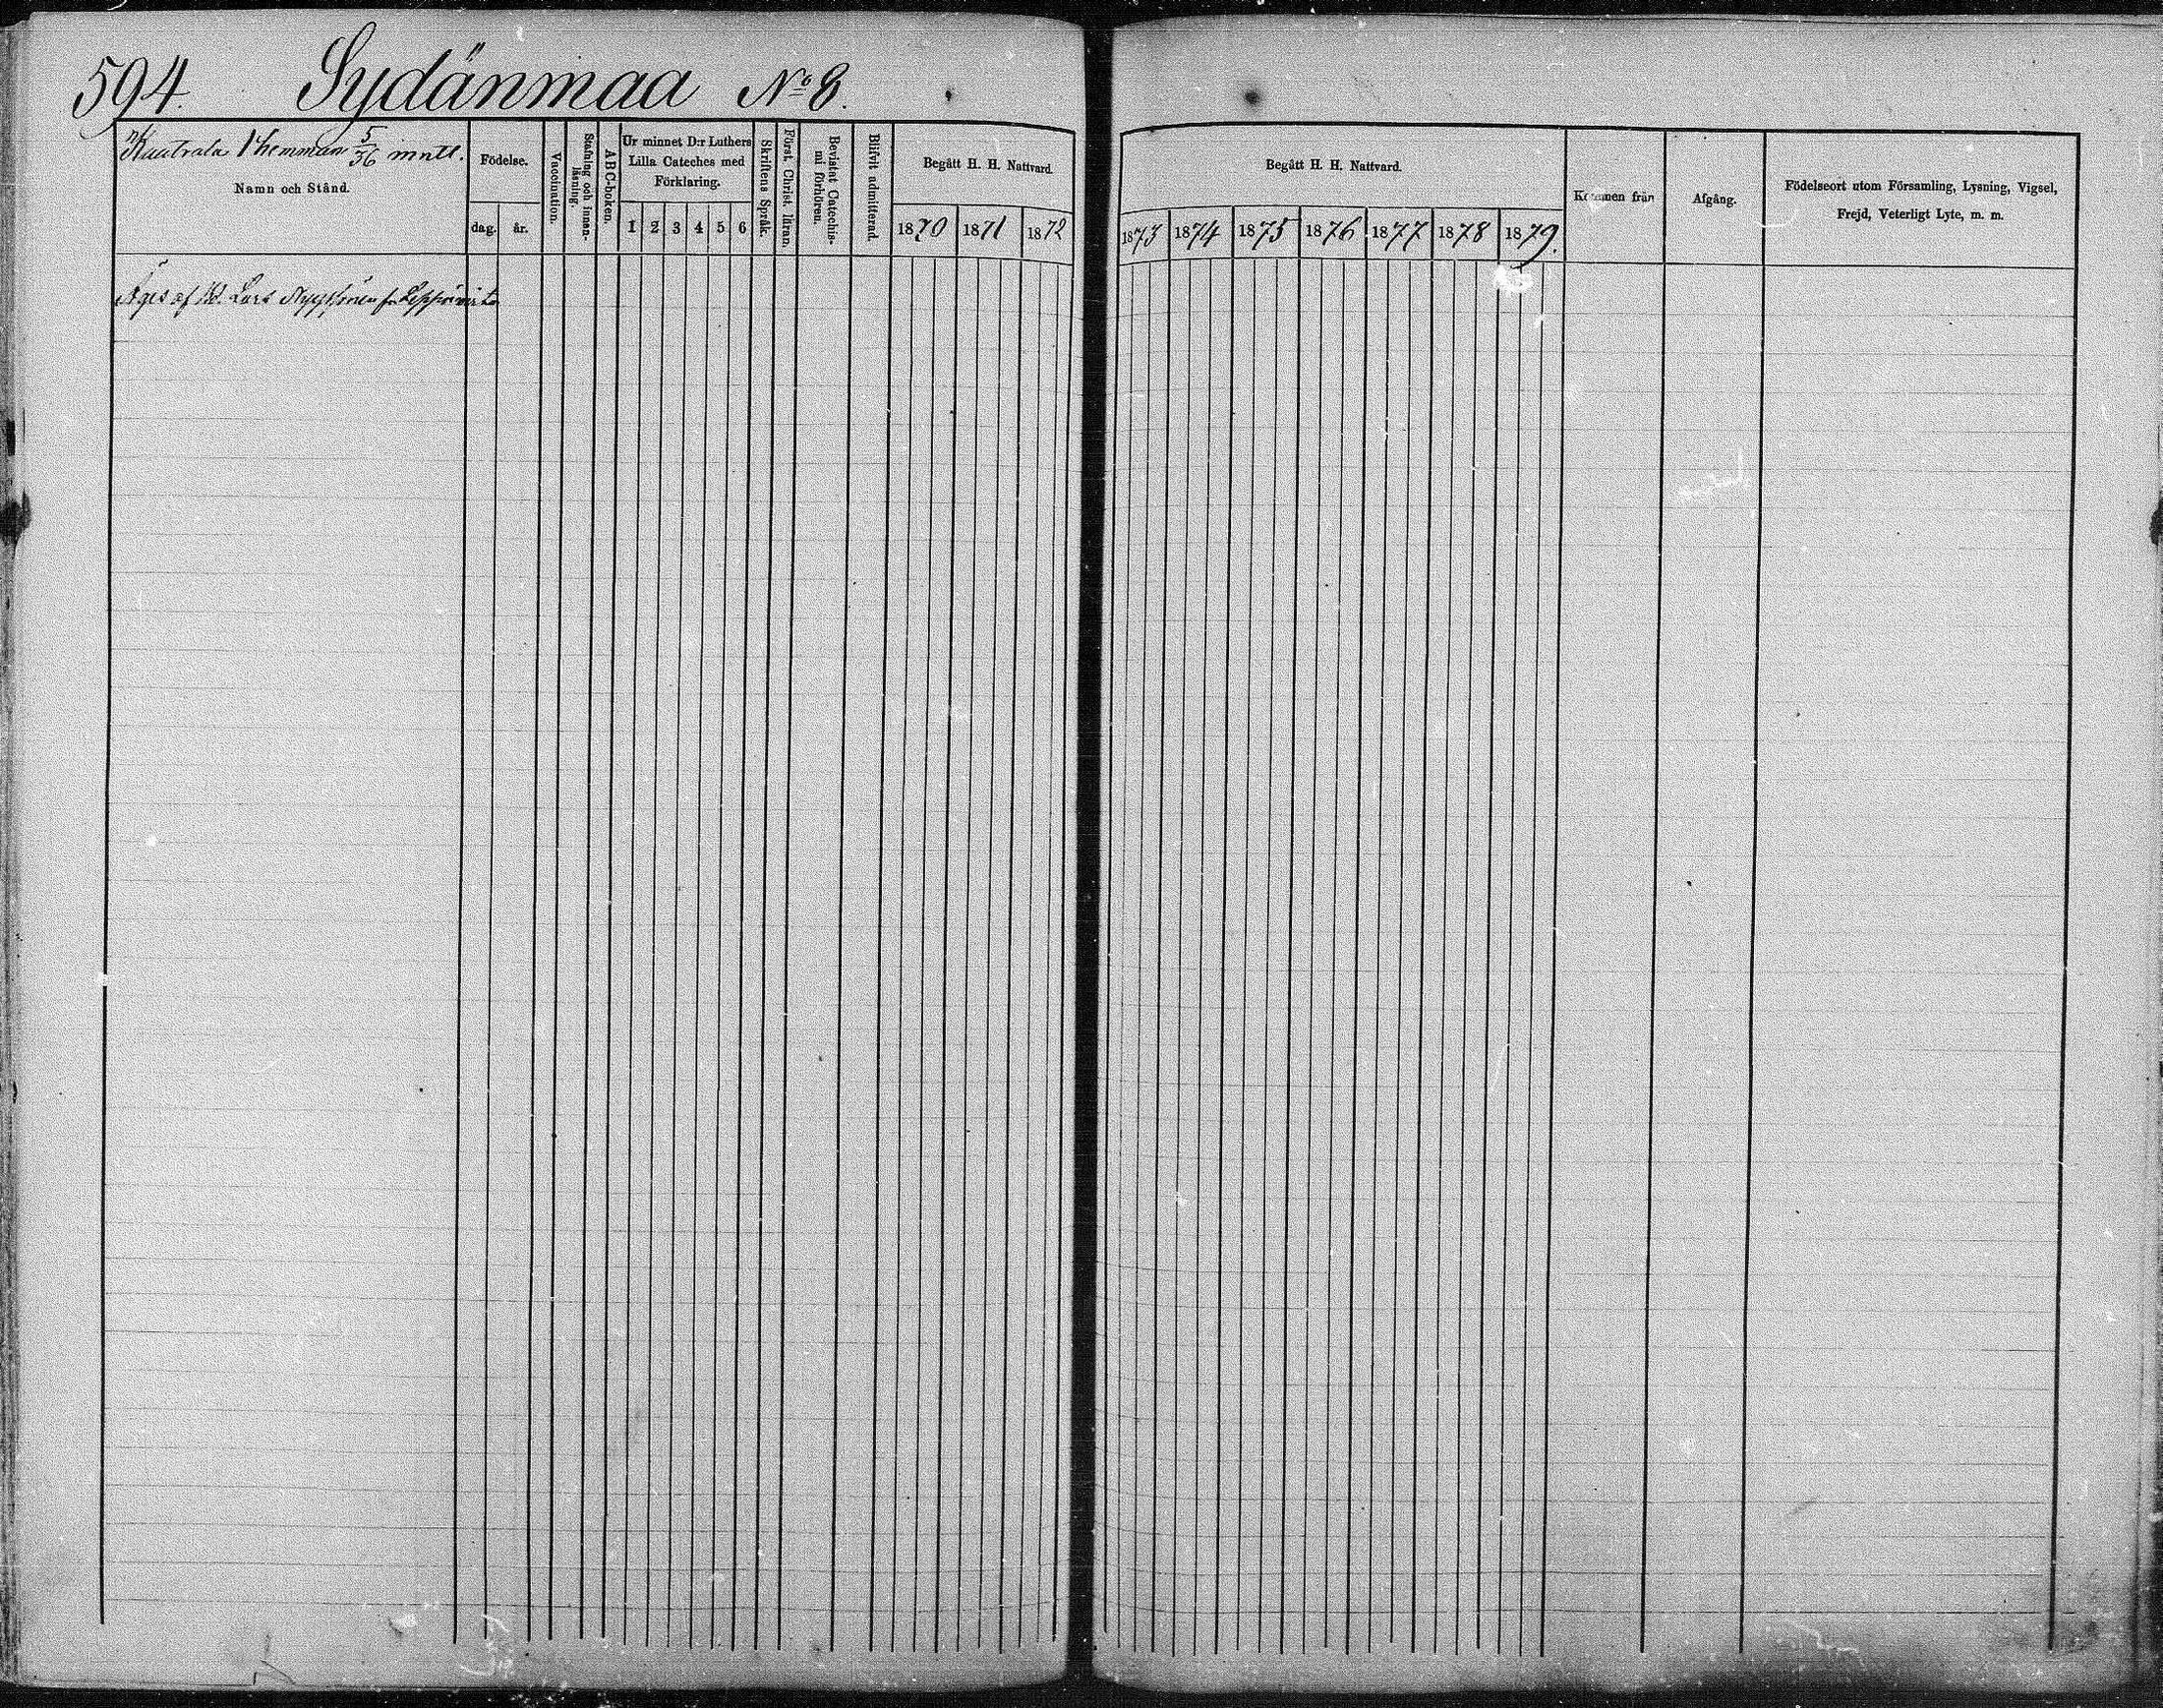 594. Sydänmaa No 8.
Kuutrala 1 hemman 5/36 mntl.
Namn och Stånd.
Födelse.
dag. år.
Vaccination.
Stafning och innan-läsning.
ABC-boken.
Ur minnet D:r Luthers
Lilla Cateches med
Förklaring.
1 2 3 4 5 6
Skriftens Språk.
Först. Christ. läran.
Bevistat Catechis-
mi förhören.
Blifvit admitterad.
Begått H. H. Nattvard.
1870 1871 1872
Begått H. H. Nattvard.
1873 1874 1875 1876 1877 1878 1879.
Kommen från
Afgång.
Födelseort utom Församling, Lysning, Vigsel,
Frejd, Veterligt Lyte, m. m.
Äges af Lars Nyyssönen fr Leppävirta